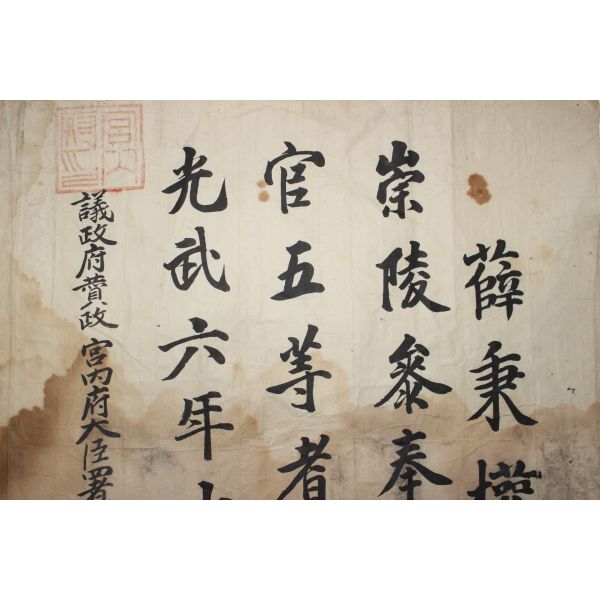 薛秉
崇陵叅奉
官五等者
光武六年
議政府賛政宮內府大臣署
宮內府印